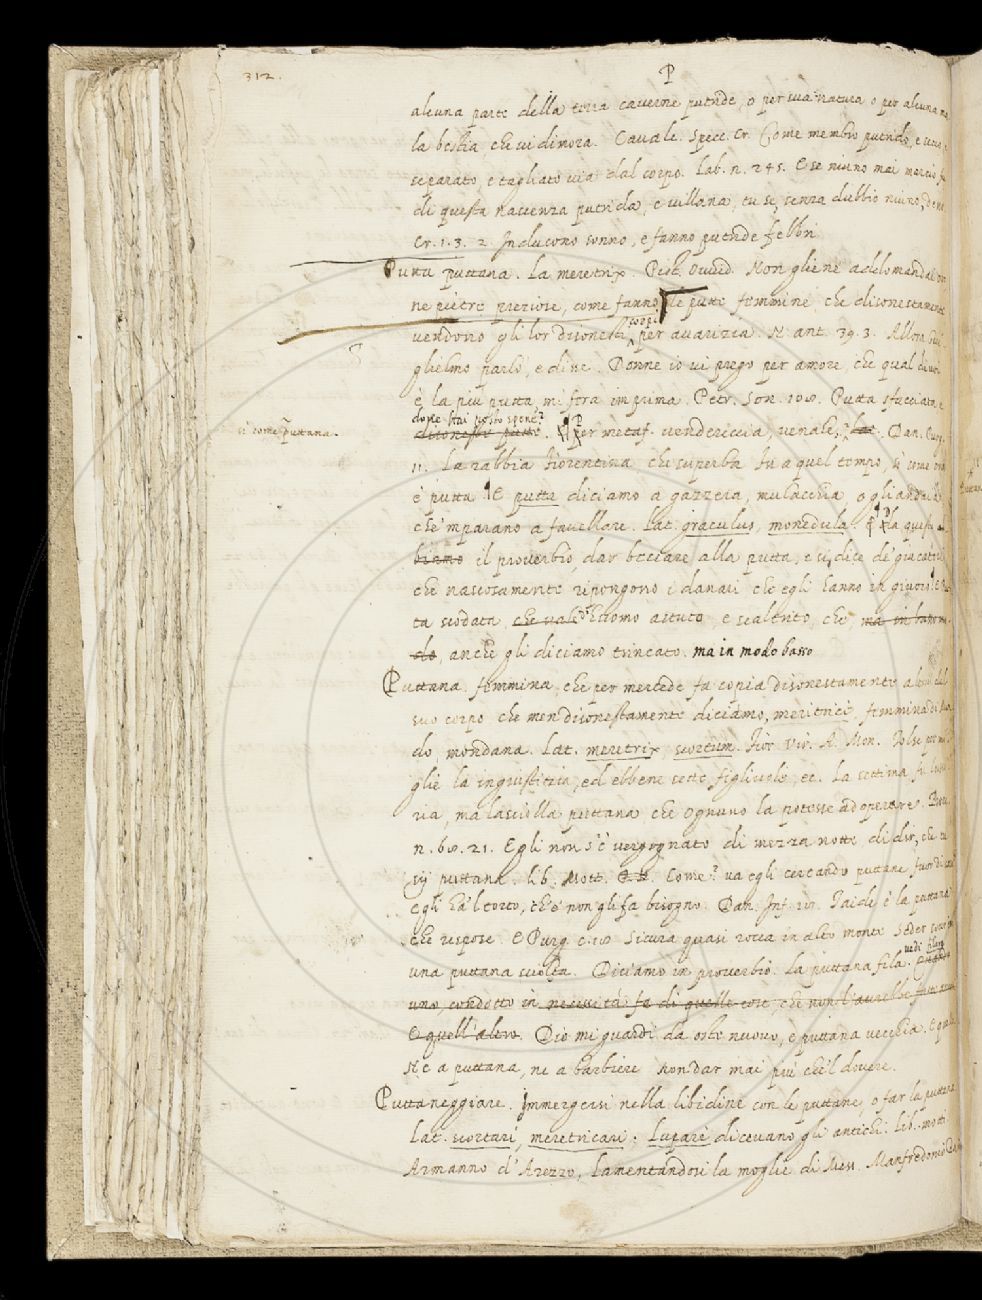 312.
P
alcuna parte della terra caverne putride, o per sua natura o per alcuna
la bestia che vi dimora. Cavalc. Specc. Cr. Come membro putrido, e
separato, e tagliato via dal corpo. Lab. n. 245. E se niuno mai marcio
di questa nascenza putrida, e villana, tu se, senza dubbio niuno,
Cr. 1. 3. 2. Inducono sonno, e fanno putride febbri
Putta puttana. La meretrix. Pist. Ovvid. Non gliene addomandai
ne pietre preziose, come fanno le putte femmine che disonestamente
vendono gli lor disonesti corpi per avarizia. N. ant. 39. 3. Allora
glielmo parlò, e disse. Donne io vi prego per amore, che qual di voi
è la più putta mi fera imprima. Petr. Son. 108. Putta sfacciata, e
dove hai posto spene?
disoneste putte. Per metaf. vendereccia, venale, lat. Dan. Purg.
sì come puttana.
11. La rabbia Fiorentina che superba Fu a quel tempo, sì come ora
è putta E putta diciamo a gazzera, mulacchia, o ghiandaia
che 'mparano a favellare. Lat. graculus, monedula. Da questa
il proverbio dar beccare alla putta, e si dice de' giucatori
che nascosamente ripongono i danari che egli hanno in giuoco
ta scodata, che vale Huomo astuto, e scaltrito, che, ma in basso mo-
do, anche gli diciamo trincato. ma in modo basso
Puttana. femmina, che per mercede fa copia disonestamente altrui del
suo corpo che men disonestamente diciamo, meritrici, femmina di
do, mondana. Lat. meretrix, scortum. Fior. Vir. A. Mon. Tolse per mo-
glie la ingiustizia, ed ebbene sette figliuole, ec. La settima fu
ria, ma lasciolla puttana che ognuno la potesse adoperare.
n. 68. 21. Egli non s'è vergognato di mezza notte di dir, che tu
sij puttana. lib. Mott. Come? va egli cercando puttane fuor di
Egli ha 'l torto, che e' non gli fa bisogno. Dan. Inf. 18. Taide è la puttana
che rispose. E Purg. c. Sicura quasi rocca in alto monte Seder
una puttana sciolta. Diciamo in proverbio. La puttana fila. vedi filare
uno, condotto in necessità fa di quelle cose, che non l'avrebbe
E quell'altro. Dio mi guardi da oste nuovo, e puttana vecchia.
Ne a puttana, ne a barbiere Non dar mai più che 'l dovere.
Puttaneggiare. Immergersi nella libidine con le puttane, o far la puttana
Lat. scortari, meretricari. Lupari dicevano gli antichi. Lib. motti
Armanno d'Arezzo, lamentandosi la moglie di Mess. Manfredonio